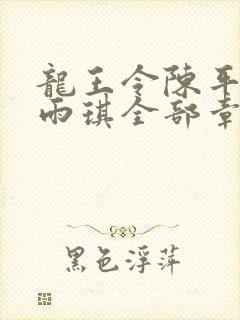 龍王令陳平
雨琪全部章
黑色浮萍